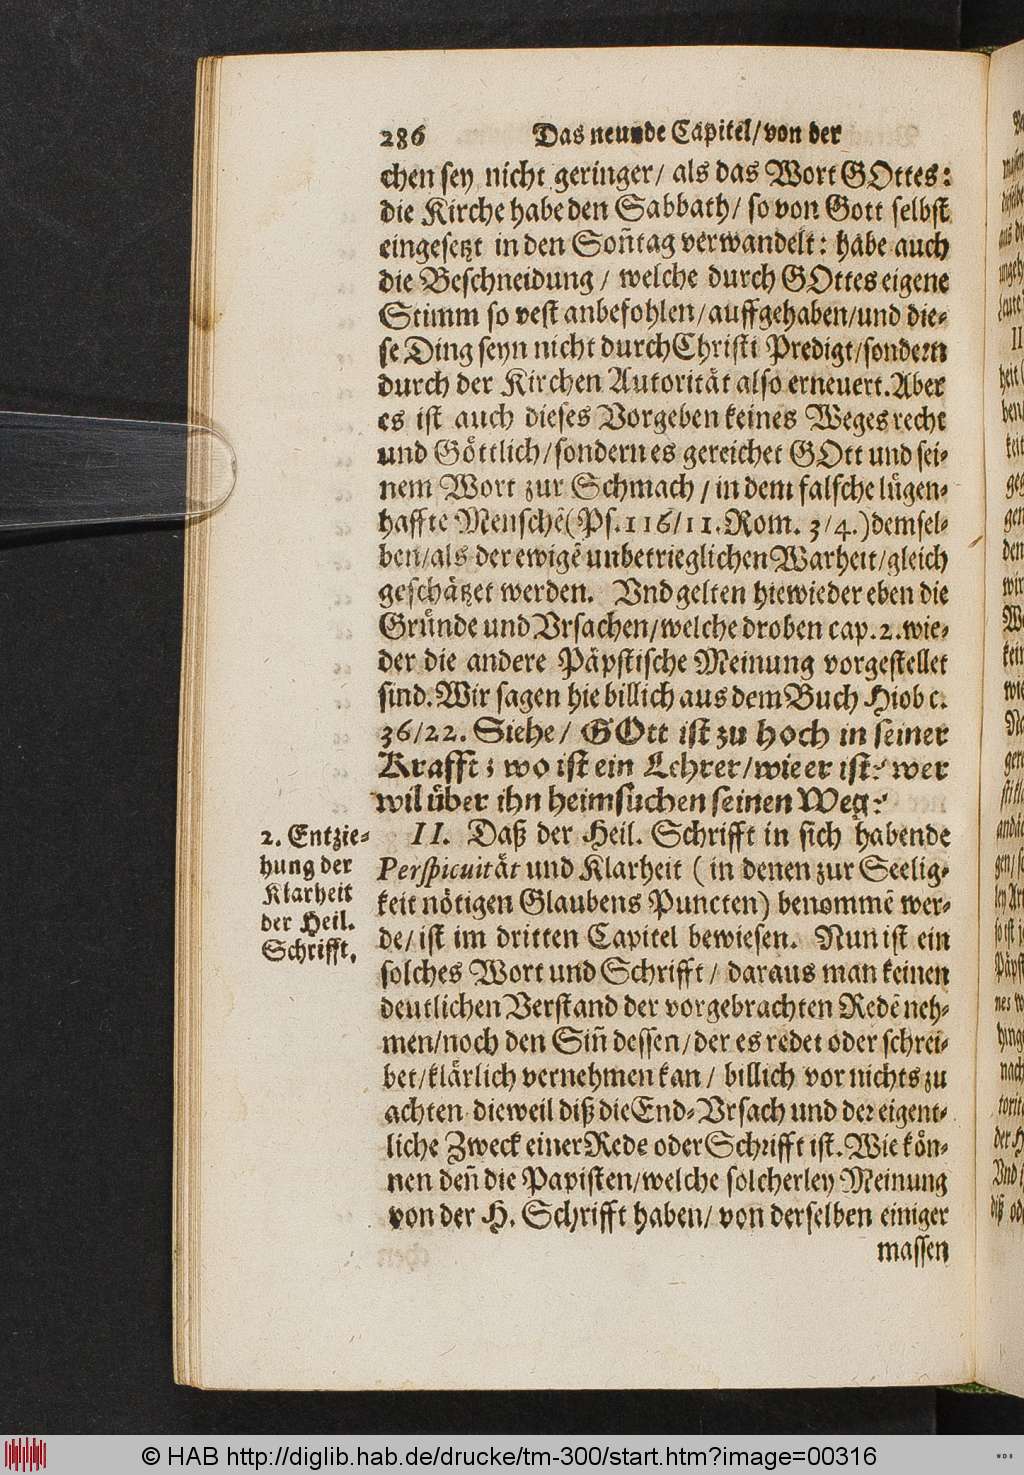 286 Das neunde Capitel/ von der
chen sey nicht geringer/ als das Wort GOttes:
die Kirche habe den Sabbath/ so von Gott selbst
eingesetzt in den Soñtag verwandelt: habe auch
die Beschneidung / welche durch GOttes eigene
Stimm so vest anbefohlen/auffgehaben/und die-
se Ding seyn nicht durch Christi Predigt/sondern
durch der Kirchen Autorität also erneuert. Aber
es ist auch dieses Vorgeben keines Weges recht
und Göttlich/sondern es gereichet GOtt und sei-
nem Wort zur Schmach / in dem falsche lügen-
haffte Menschẽ(Ps. 116/11. Rom. 3/4.) demsel-
ben/als der ewigẽ unbetrieglichen Warheit/gleich
geschätzet werden. Vnd gelten hiewieder eben die
Gründe und Vrsachen/welche droben cap. 2. wie-
der die andere Päpstische Meinung vorgestellet
sind. Wir sagen hie billich aus dem Buch Hiob c.
36/22. Siehe/ GOtt ist zu hoch in seiner
Krafft; wo ist ein Lehrer/wie er ist? wer
wil über ihn heimsuchen seinen Weg?
2. Entzie-
hung der
Klarheit
der Heil.
Schrifft.
II. Daß der Heil. Schrifft in sich habende
Perspicuität und Klarheit ( in denen zur Seelig-
keit nötigen Glaubens Puncten) benommẽ wer-
de/ ist im dritten Capitel bewiesen. Nun ist ein
solches Wort und Schrifft / daraus man keinen
deutlichen Verstand der vorgebrachten Redẽ neh-
men/noch den Siñ dessen/der es redet oder schrei-
bet/klärlich vernehmen kan / billich vor nichts zu
achten dieweil diß die End-Vrsach und der eigent-
liche Zweck einer Rede oder Schrifft ist. Wie kön-
nen deñ die Papisten/welche solcherley Meinung
von der H. Schrifft haben/ von derselben einiger
massen
© HAB http://diglib.hab.de/drucke/tm-300/start.htm?image=00316